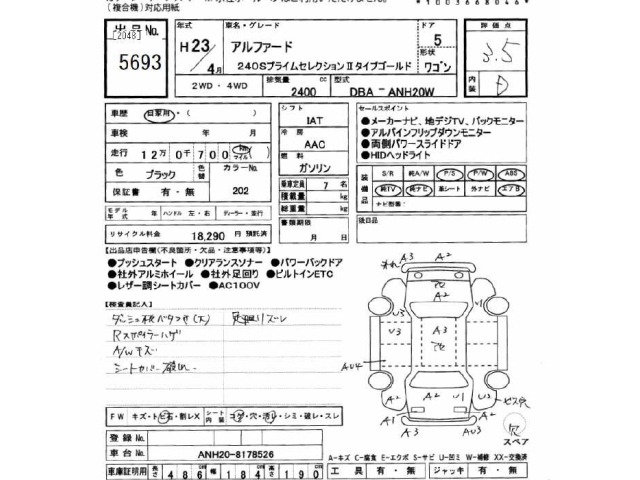 (複合機)対応用紙
*1003668046*
出品No.
[2048]
5693
年式
H23/4月
車名・グレード
アルファード
240SプライムセレクションⅡタイプゴールド
ドア
5
形状
ワゴン
評価点
3.5
内装
D
2WD・4WD
排気量
2400
cc
型式
DBA-ANH20W
車歴
自家用・( )
車検 年 月
走行
12万0千700
km
マイル
色
ブラック
色替
カラーNo.
202
保証書
有・無
シフト
IAT
冷房
AAC
燃料
ガソリン
乗車定員
7
名
積載量
kg
総重量
kg
セールスポイント
●メーカーナビ、地デジTV、バックモニター
●アルパインフリップダウンモニター
●両側パワースライドドア
●HIDヘッドライト
装備品
S/R 純A/W P/S P/W ABS
純TV 純ナビ 革シート 外ナビ エアB
ナビ型番:
モデル年式 年 ハンドル 左・右 ディーラー・並行
リサイクル料金 18,290 円 預託済
書類期限
月 日
後日品
【出品店申告欄(不良箇所・欠品・注意事項等)】
●プッシュスタート ●クリアランスソナー ●パワーバックドア
●社外アルミホイール ●社外足回り ●ビルトインETC
●レザー調シートカバー ●AC100V
【検査員記入】
Rスポイラーハゲ
A/Wキズ
シートカバー破れ
FW キズ・トビ石・削レX
シート内装
コゲ・穴・汚レ・シミ・破レ・スレ
登録No.
車台No.
ANH20-8178526
車庫証明用
長さ 486 cm 幅 184 cm 高さ 190 cm
A3
A2
A2
U3
A3
A2
V3
AU4
A2
A2
U1
U3
A2
A1
A2
AU3
スペア
A-キズ C-腐食 E-エクボ S-サビ U-凹ミ W-補修 XX-交換済
工具 有・無 ジャッキ 有・無